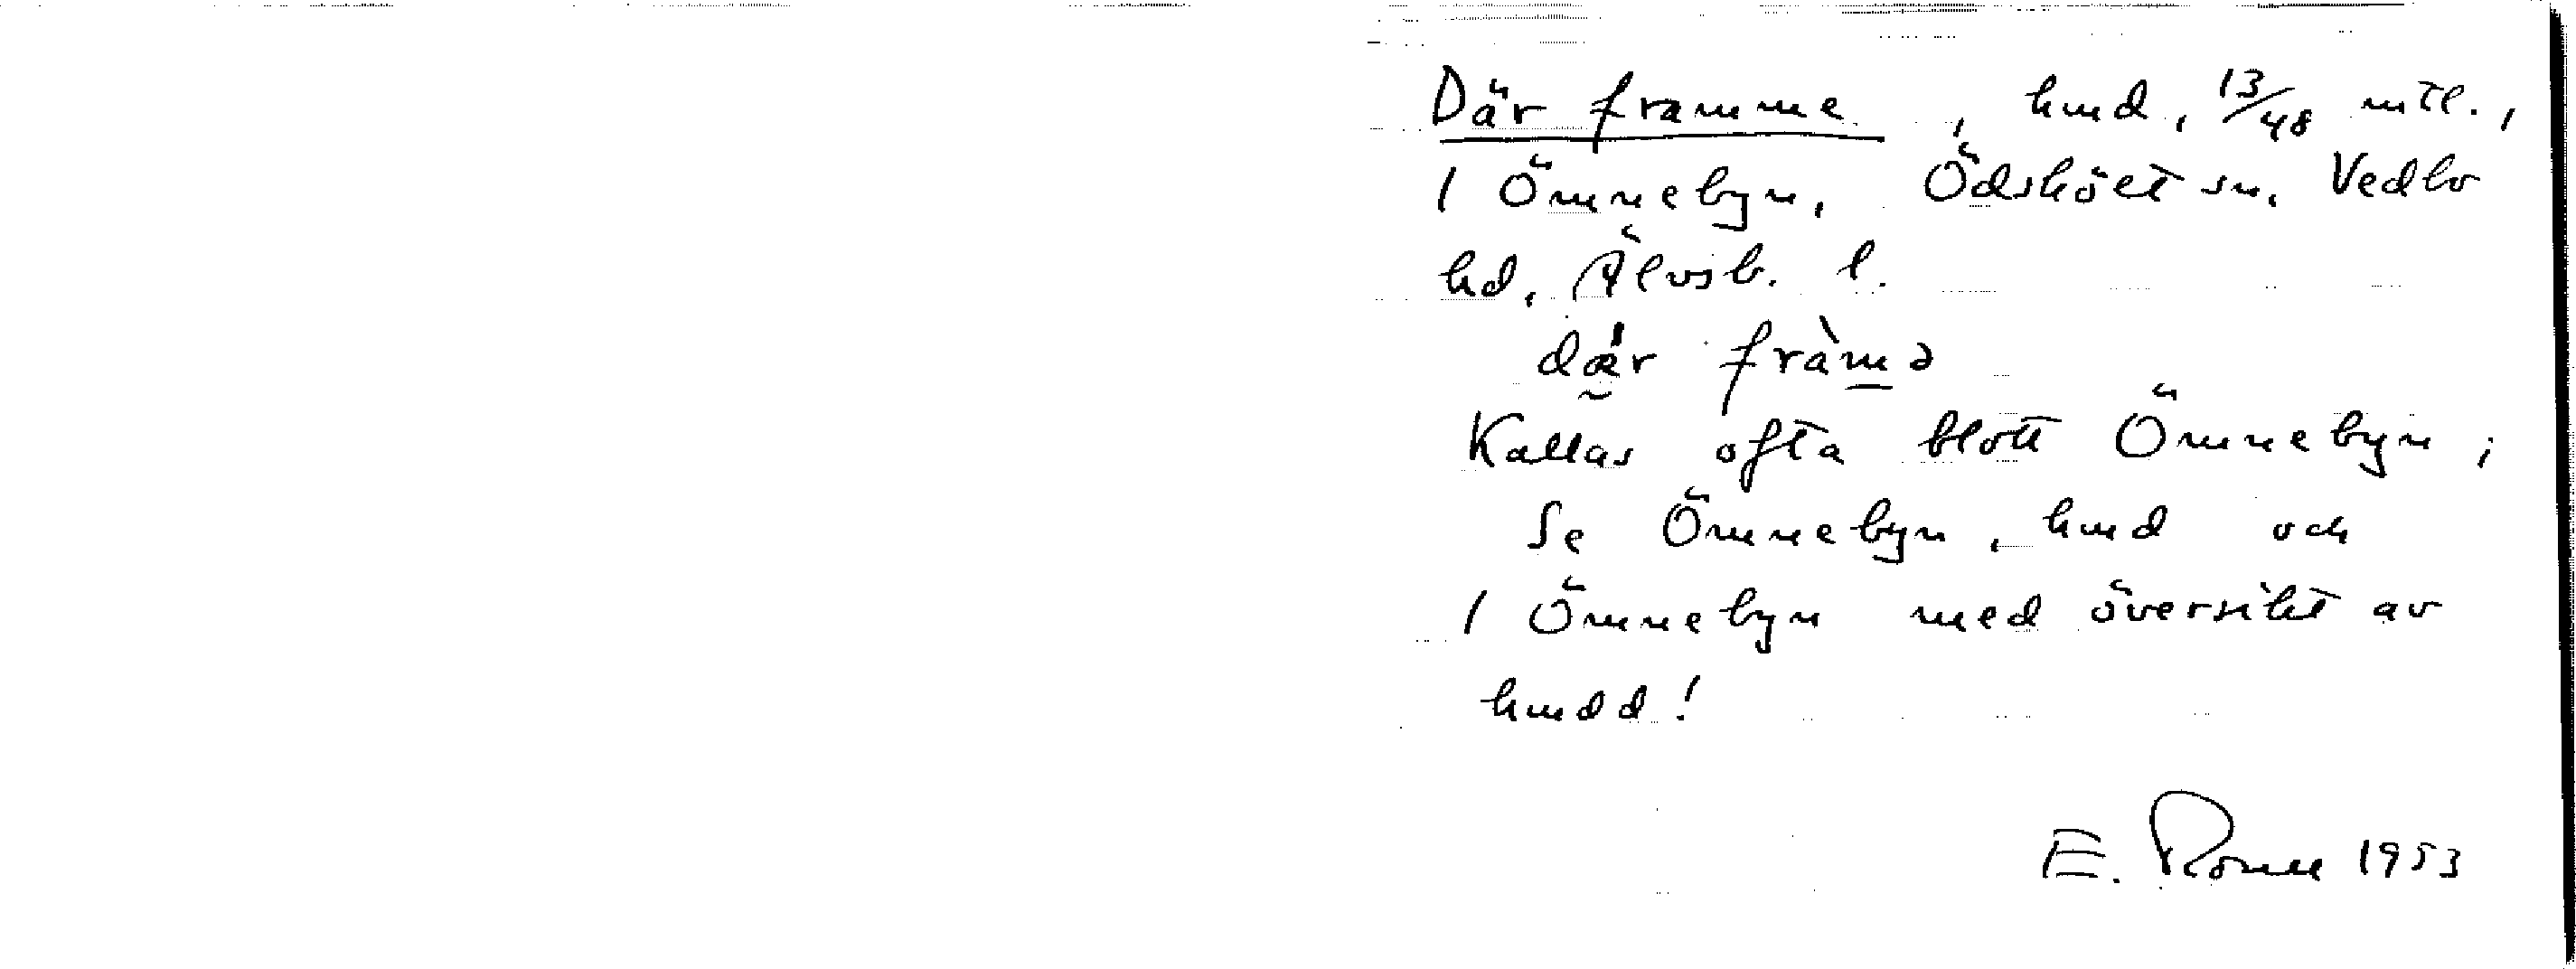 Där framme, hmd, 13/48 mtl.,
1 Ömnebyn, Ödskölt sn, Vedbo
hd, Älvsb. l.
dǽ̰r fràm̲ə
Kallas ofta blott Ömnebyn;
Se Ömnebyn, hmd och
1 Ömnebyn med översikt av
hmdd!
E. 1953